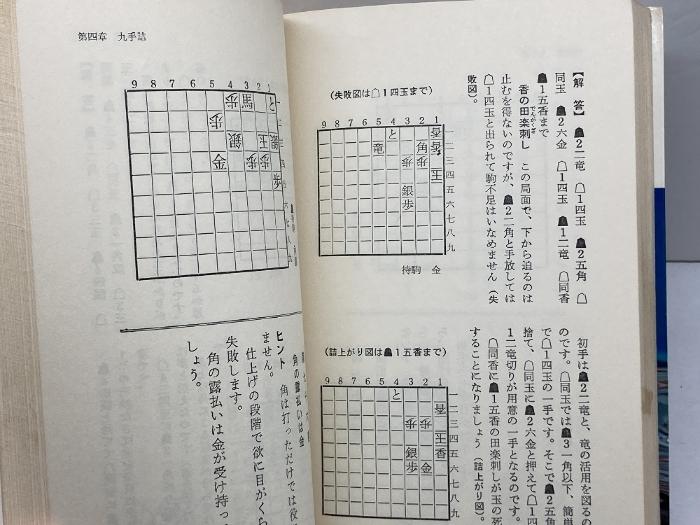 【解答】☗2二竜 ☖1四玉 ☗2五角 ☖
同玉 ☗2六金 ☖1四玉 ☗1二竜 ☖同香
☗1五香まで
香の田楽刺し この局面で、下から迫るのは
でんがくざ
止むを得ないのですが、☗2二角と手放しては
☖1四玉と出られて駒不足はいなめません（失
敗図）。
（失敗図は☖1四玉まで）
9 8 7 6 5 4 3 2 1
と 香
竜 角
歩 歩
玉
銀
歩
一二三四五六七八九
持駒 金
初手は☗2二竜と、竜の活用を図るの
のです。☖同玉では☗3一角以下、簡単
で☖1四玉の一手です。そこで☗2五角
捨て、☖同玉に☗2六金と押えて☖1四
1二竜切りが用意の一手となるのです。
☖同香に☗1五香の田楽刺しが玉の死
することになりましょう（詰上がり図）。
（詰上がり図は☗1五香まで）
9 8 7 6 5 4 3 2 1
と
香
歩 歩
玉
銀 香
歩 金
一二三四五六七八九
第四章 九手詰
9 8 7 6 5 4 3 2 1
歩 と
歩
銀 玉
金 歩 歩
歩
ヒント 角は打っただけでは役
ません。
仕上げの段階で欲に目がくら
失敗します。
角の露払いは金が受け持っ
しょう。